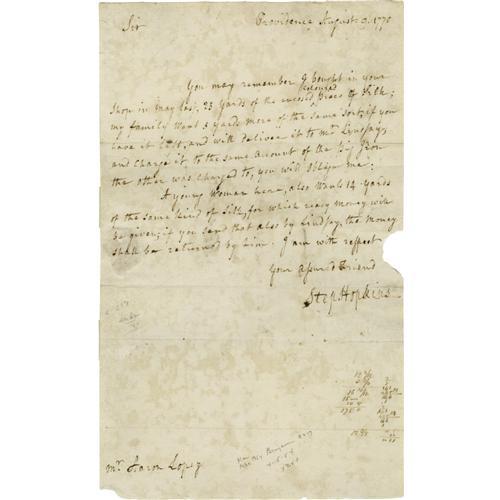 Sir Providence August 9. 1770
You may remember I bought in your
coloured
Shou in may last, 23 yards of the inclosed Piece of Silk;
my family Want 3 yards more of the same Sort; if you
have it left, and will deliver it to mr Lindsay,
and Charge it to the same account of the
the other was Charged to, you will oblige me:
A young Woman here, also Want 14 yards
of the same kind of Silk, for which ready money will
be given; if you send that also by Lindsay, the money
shall be returned by him. I am with respect
Your assured Friend
Step Hopkins
mr Aaron Lopez